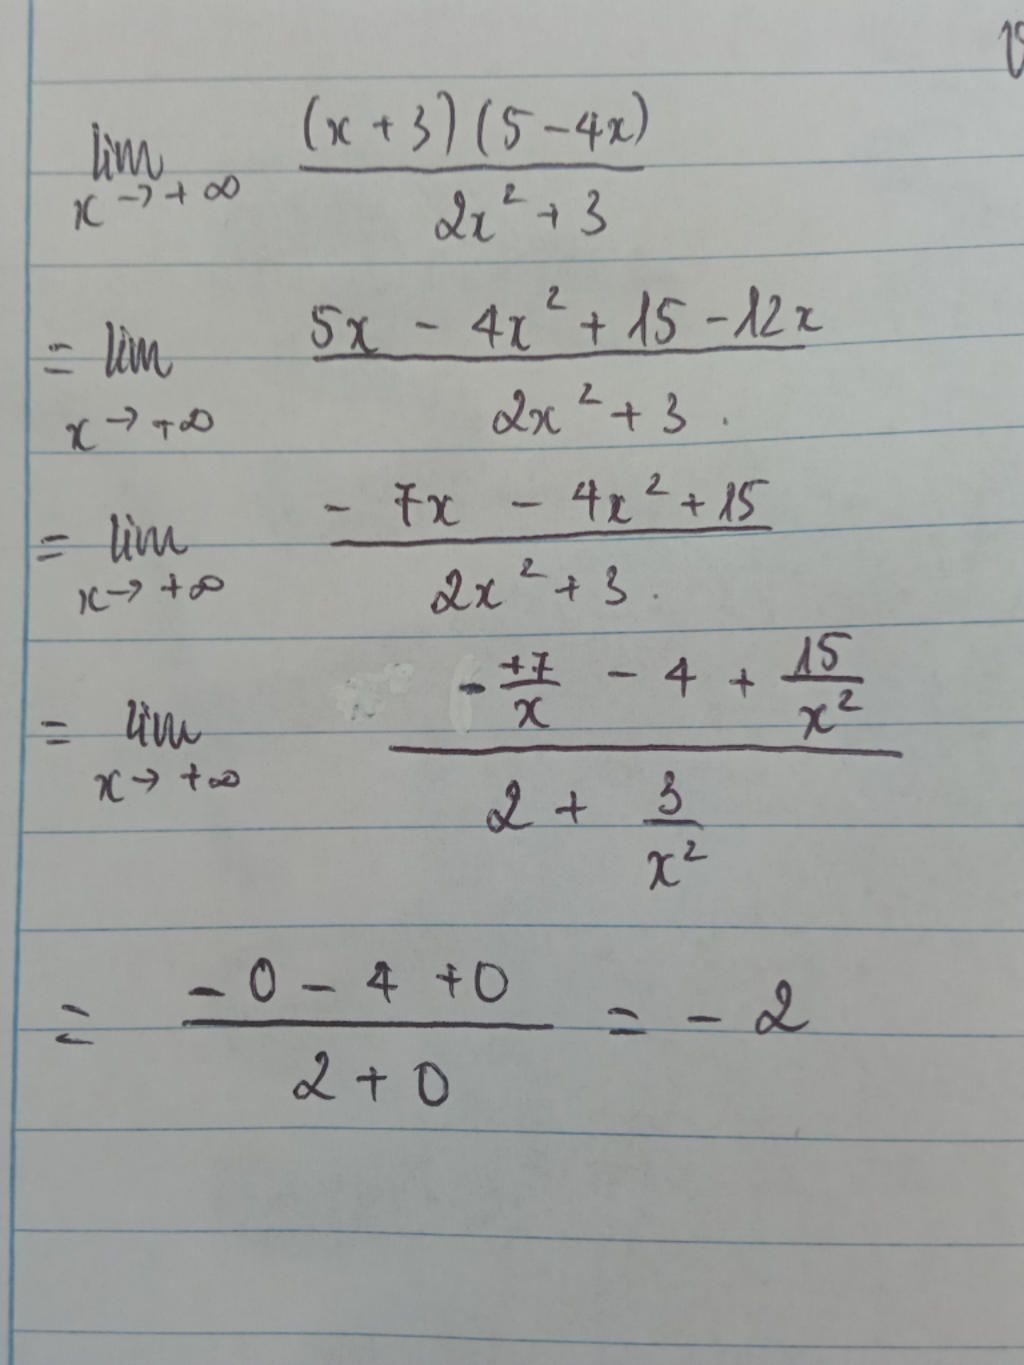 lim x→+∞ (x+3)(5-4x) / 2x²+3
= lim x→+∞ 5x - 4x² + 15 - 12x / 2x²+3.
= lim x→+∞ - 7x - 4x² + 15 / 2x²+3.
= lim x→+∞ - +7/x - 4 + 15/x² / 2 + 3/x²
= - 0 - 4 + 0 / 2 + 0 = - 2